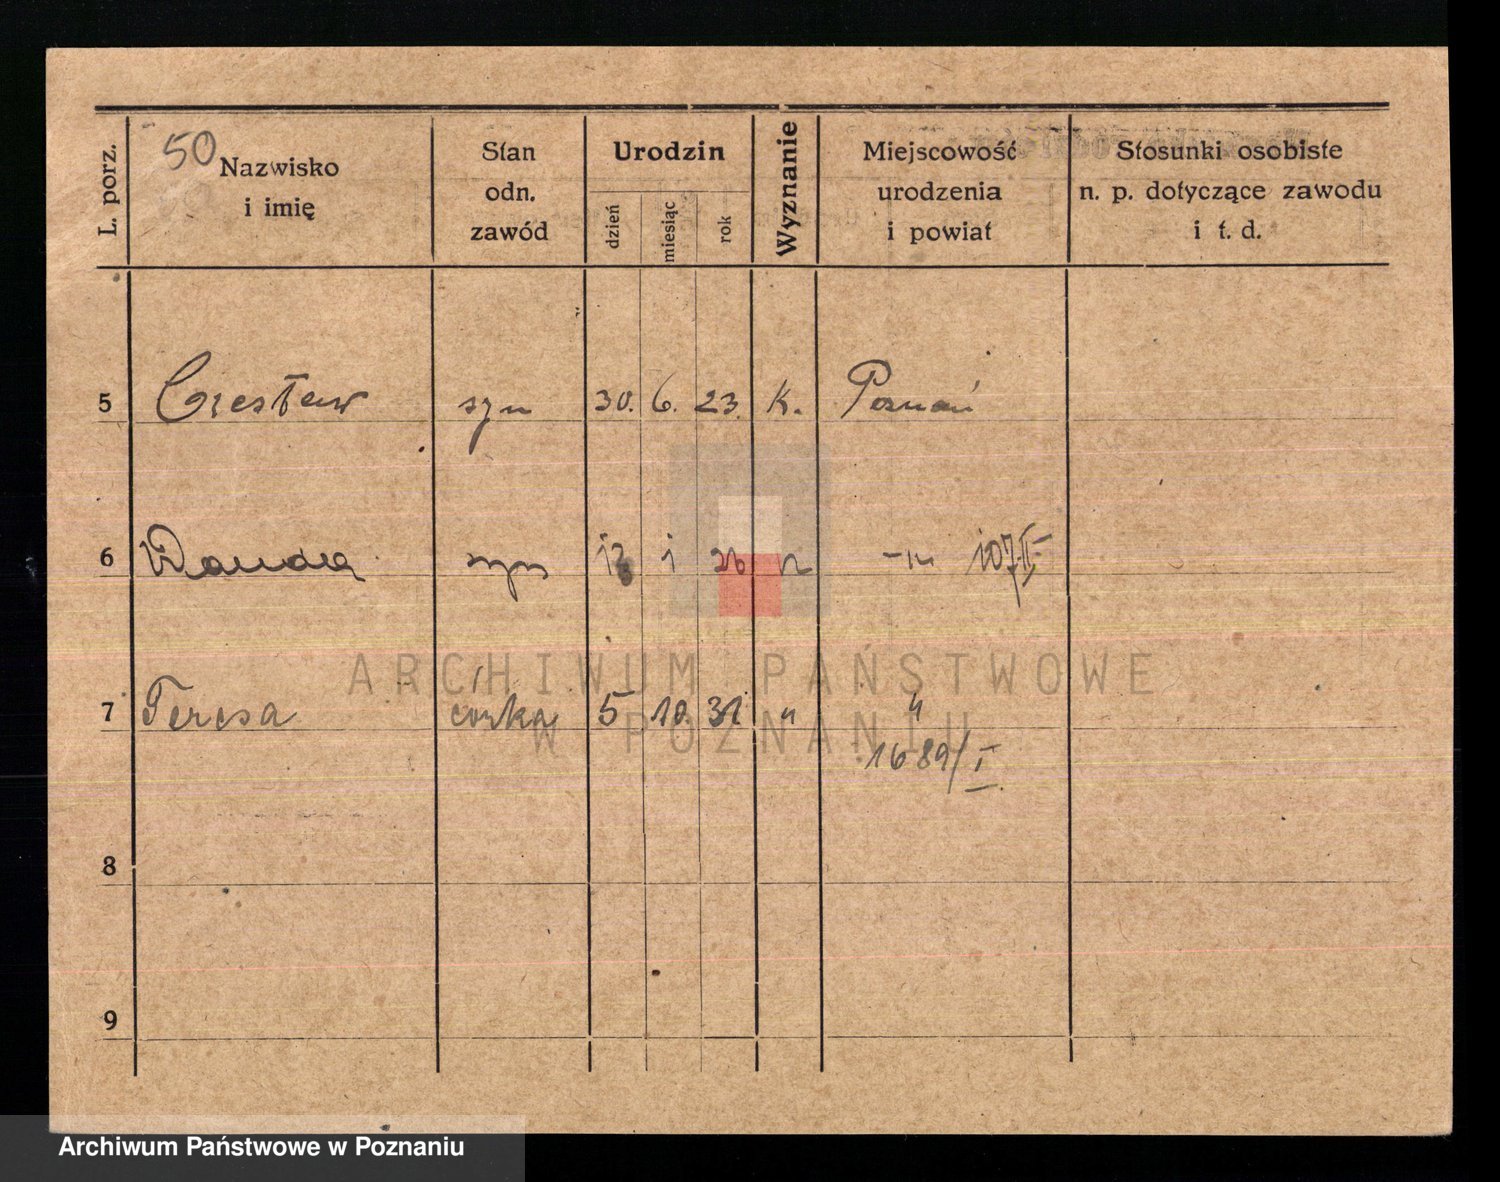 50
L. porz.
Nazwisko
i imię
Stan
odn.
zawód
Urodzin
dzień
miesiąc
rok
Wyznanie
Miejscowość
urodzenia
i powiat
Stosunki osobiste
n. p. dotyczące zawodu
i t. d.
5 Czesław syn 30. 6. 23. K. Poznań
6 Wanda 1 26 107/II
7 Teresa córka 5 10. 31 " "
1689/I
8
9
ARCHIWUM PAŃSTWOWE
W POZNANIU
Archiwum Państwowe w Poznaniu